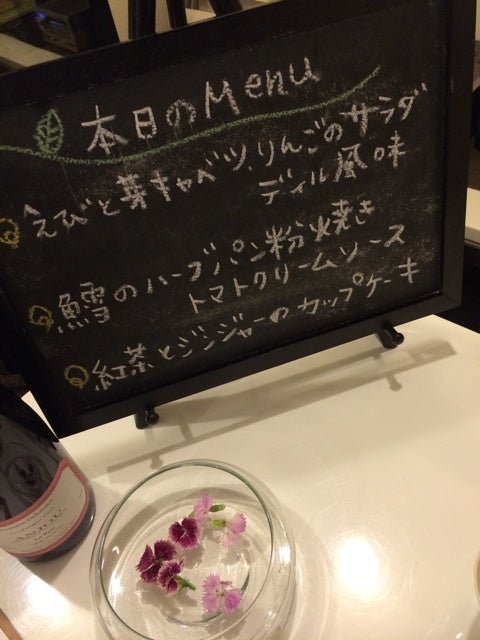 本日のMenu
えびと芽キャベツ、りんごのサラダ
ディル風味
鱈のハーブパン粉焼き
トマトクリームソース
紅茶とジンジャーのカップケーキ
ANJOU